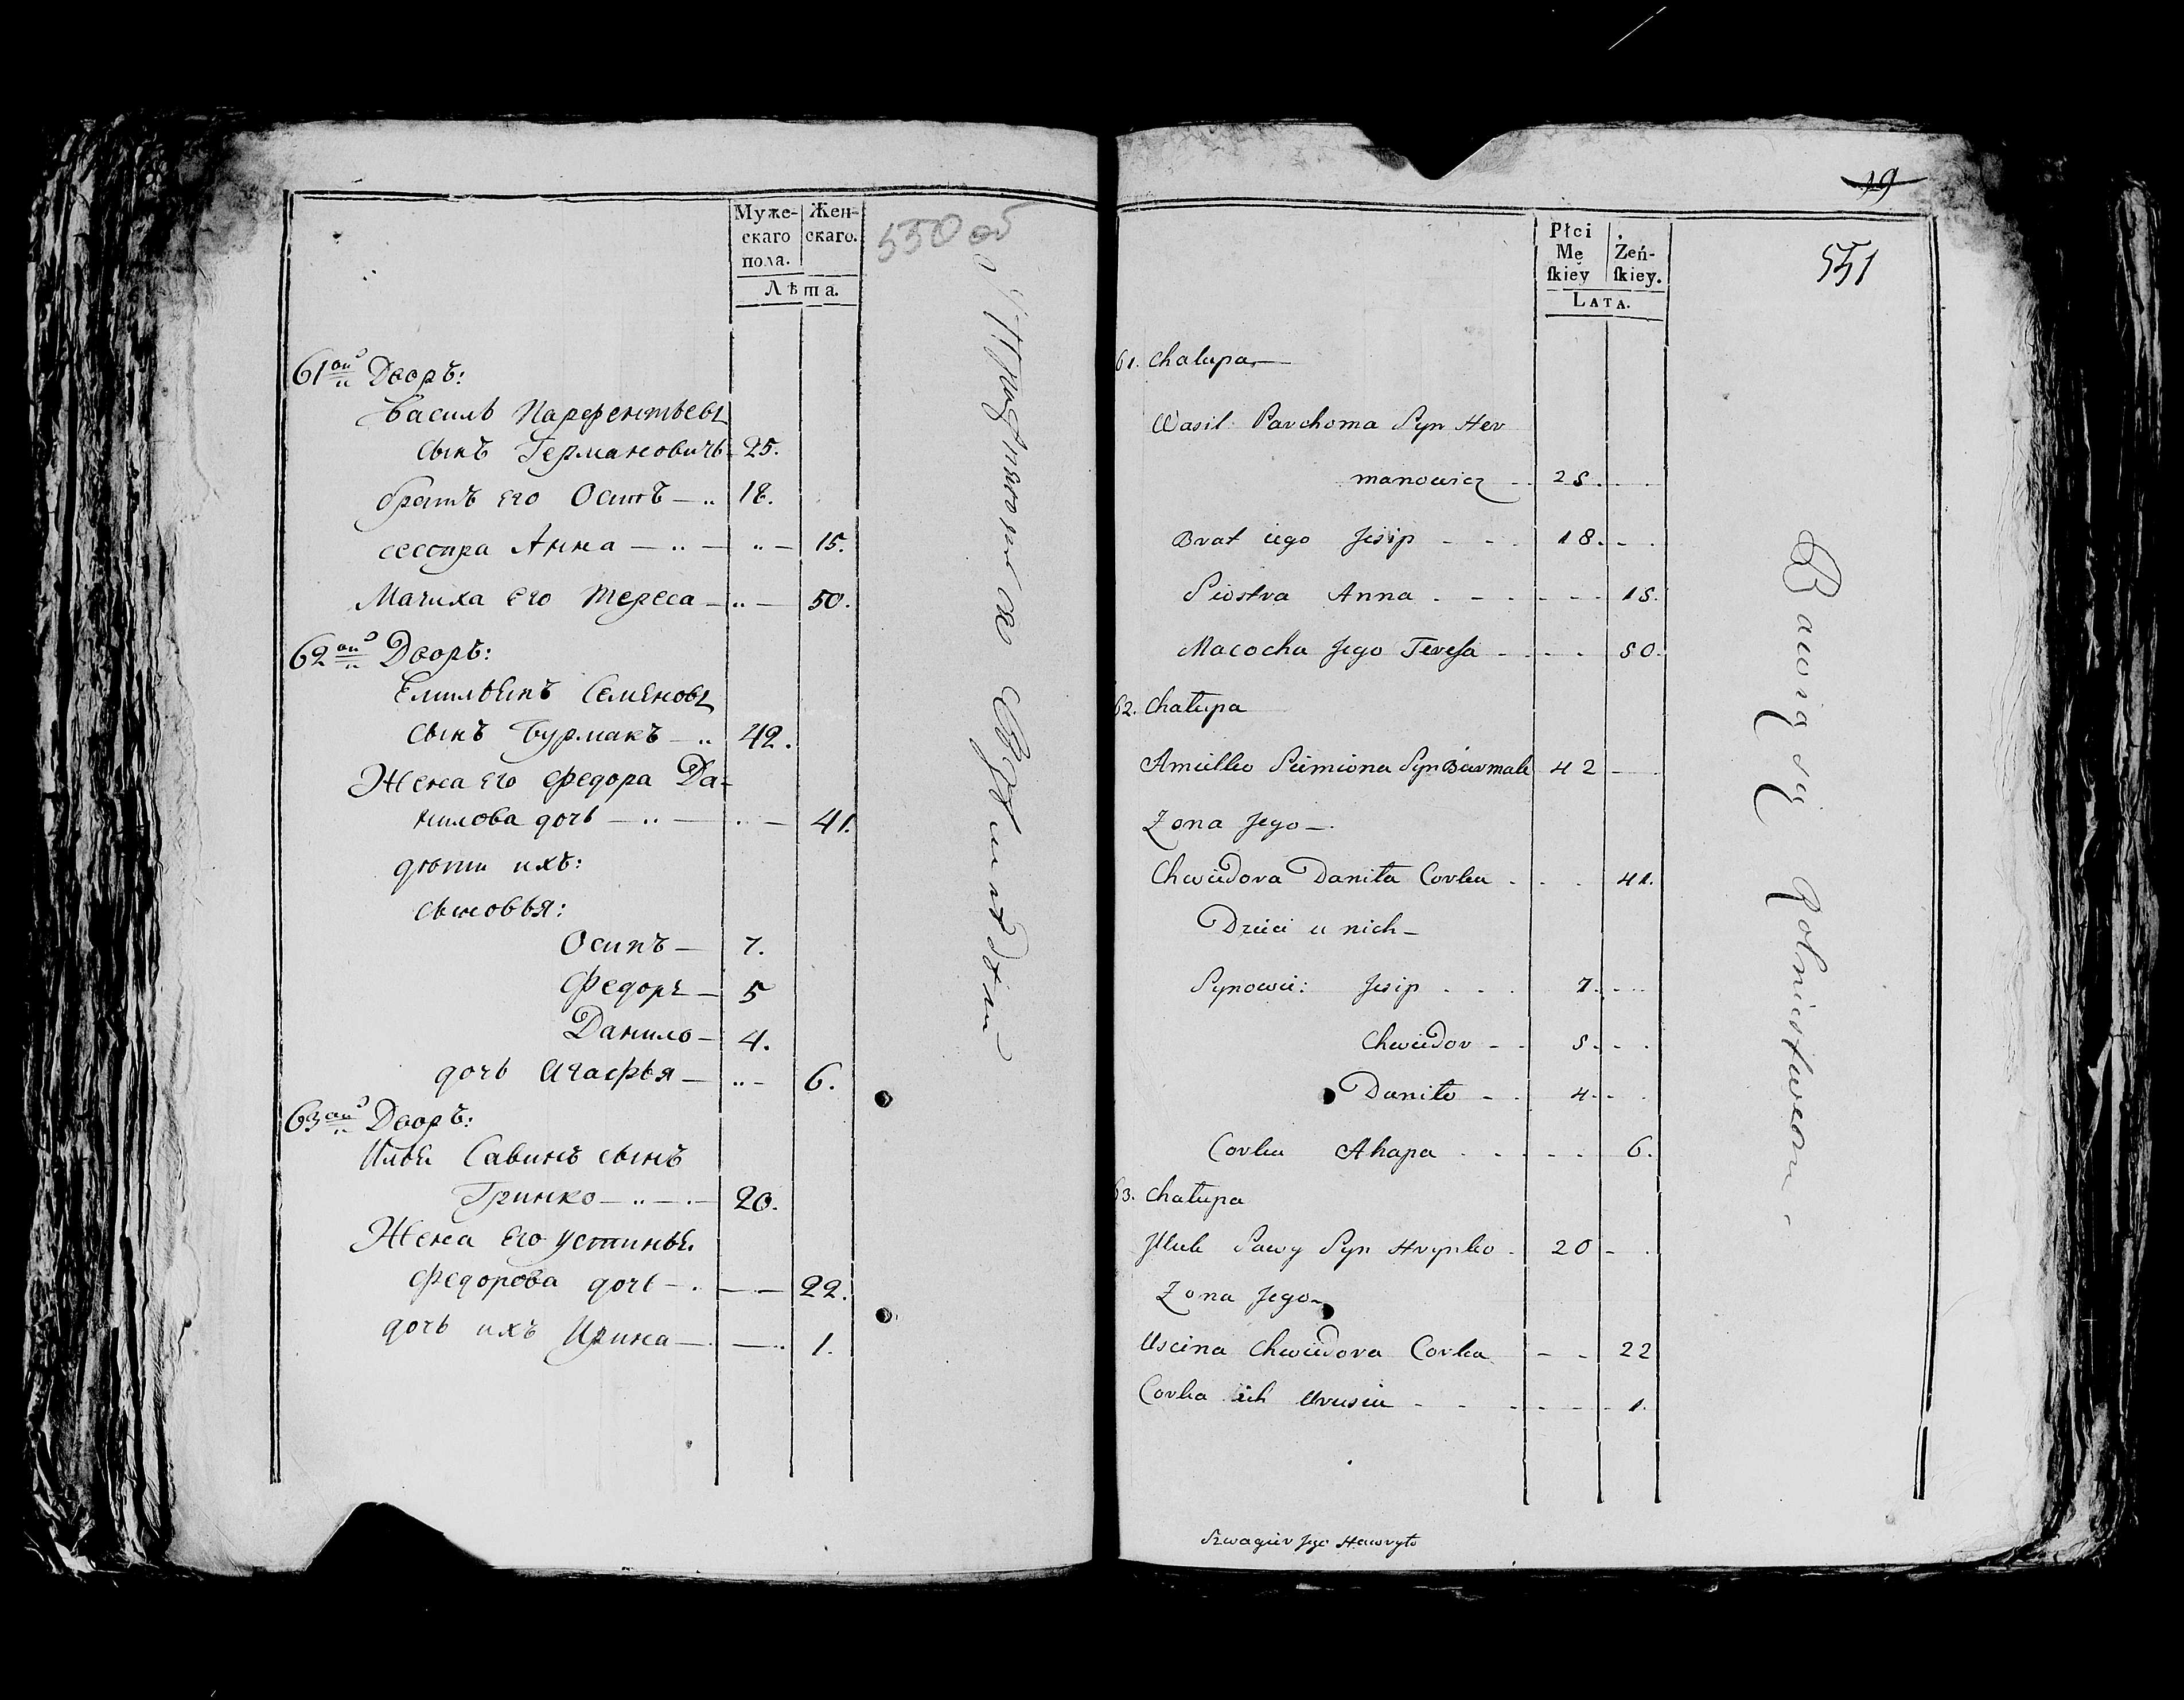 Муже-
скаго
пола.
Жен-
скаго.
Лѣта.
550 об
61ой Дворъ:
Василь Парфентьевъ
сынъ Германовичъ 25.
братъ его Осипъ — 18.
сестра Анна — 15.
Мачиха его Тереса — 50.
62ой Дворъ:
Емильянъ Семеновъ
сынъ Бурмакъ — 42.
Жена его Федора Да-
нилова дочь — 41.
дѣти ихъ:
сыновья:
Осипъ — 7.
Федоръ — 5
Данило — 4.
дочь Агафья — 6.
63ой Дворъ:
Илья Савинъ сынъ
Гринко — 20.
Жена его Устинья
Федорова дочь — 22.
дочь ихъ Ирина — 1.
19
551
Płci
Mę
ſkiey
Żeń-
ſkiey.
LATA.
61. Chałupa
Wasil Parchoma Syn Her
manowicz 25.
Brat iego Jesip 18.
Siostra Anna 15.
Macocha Jego Teresa 50.
62. Chałupa
Amiellko Siemiona Syn Burmak 42
Zona Jego
Chwiedora Daniła Corka 41.
Dzieci u nich
Synowie: Jesip 7.
Chwiedor 5.
Daniło 4.
Corka Ahapa 6.
63. Chałupa
Jlluk Sawy Syn Hrynko 20
Zona Jego
Uscina Chwiedora Corka 22
Corka ich Urusia 1.
Bawią się Rolnictwem
Szwagier Jego Hawryło